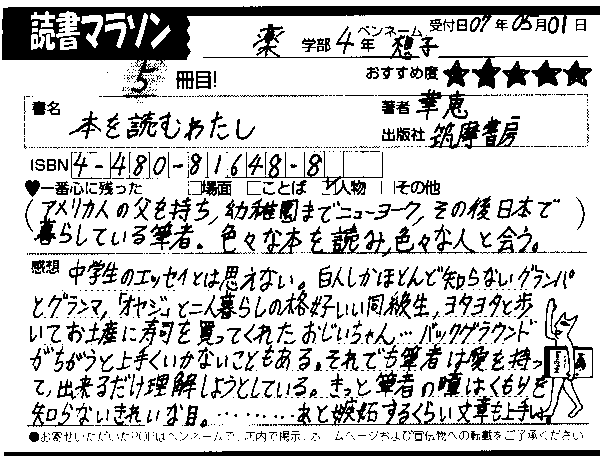 読書マラソン
薬 学部 4年 ペンネーム 想子 受付日 07年05月01日
5 冊目! おすすめ度 ★★★★★
書名 本を読むわたし
著者 華恵
出版社 筑摩書房
ISBN 4-480-81648-8
♥一番心に残った □場面 □ことば ☑人物 □その他
(アメリカ人の父を持ち,幼稚園までニューヨーク,その後日本で
暮らしている筆者。色々な本を読み,色々な人と会う。)
感想 中学生のエッセイとは思えない。白人しかほとんど知らないグランパ
とグランマ,「オヤジ」と二人暮らしの格好いい同級生,ヨタヨタと歩
いてお土産に寿司を買ってくれたおじいちゃん…バックグラウンド
がちがうと上手くいかないこともある。それでも筆者は愛を持っ
て,出来るだけ理解しようとしている。きっと筆者の瞳はくもりを
知らないきれいな目。………あと嫉妬するくらい文章も上手い。
●お寄せいただいたPOPはペンネームで、店内で掲示、ホームページおよび宣伝物への転載をご了承ください